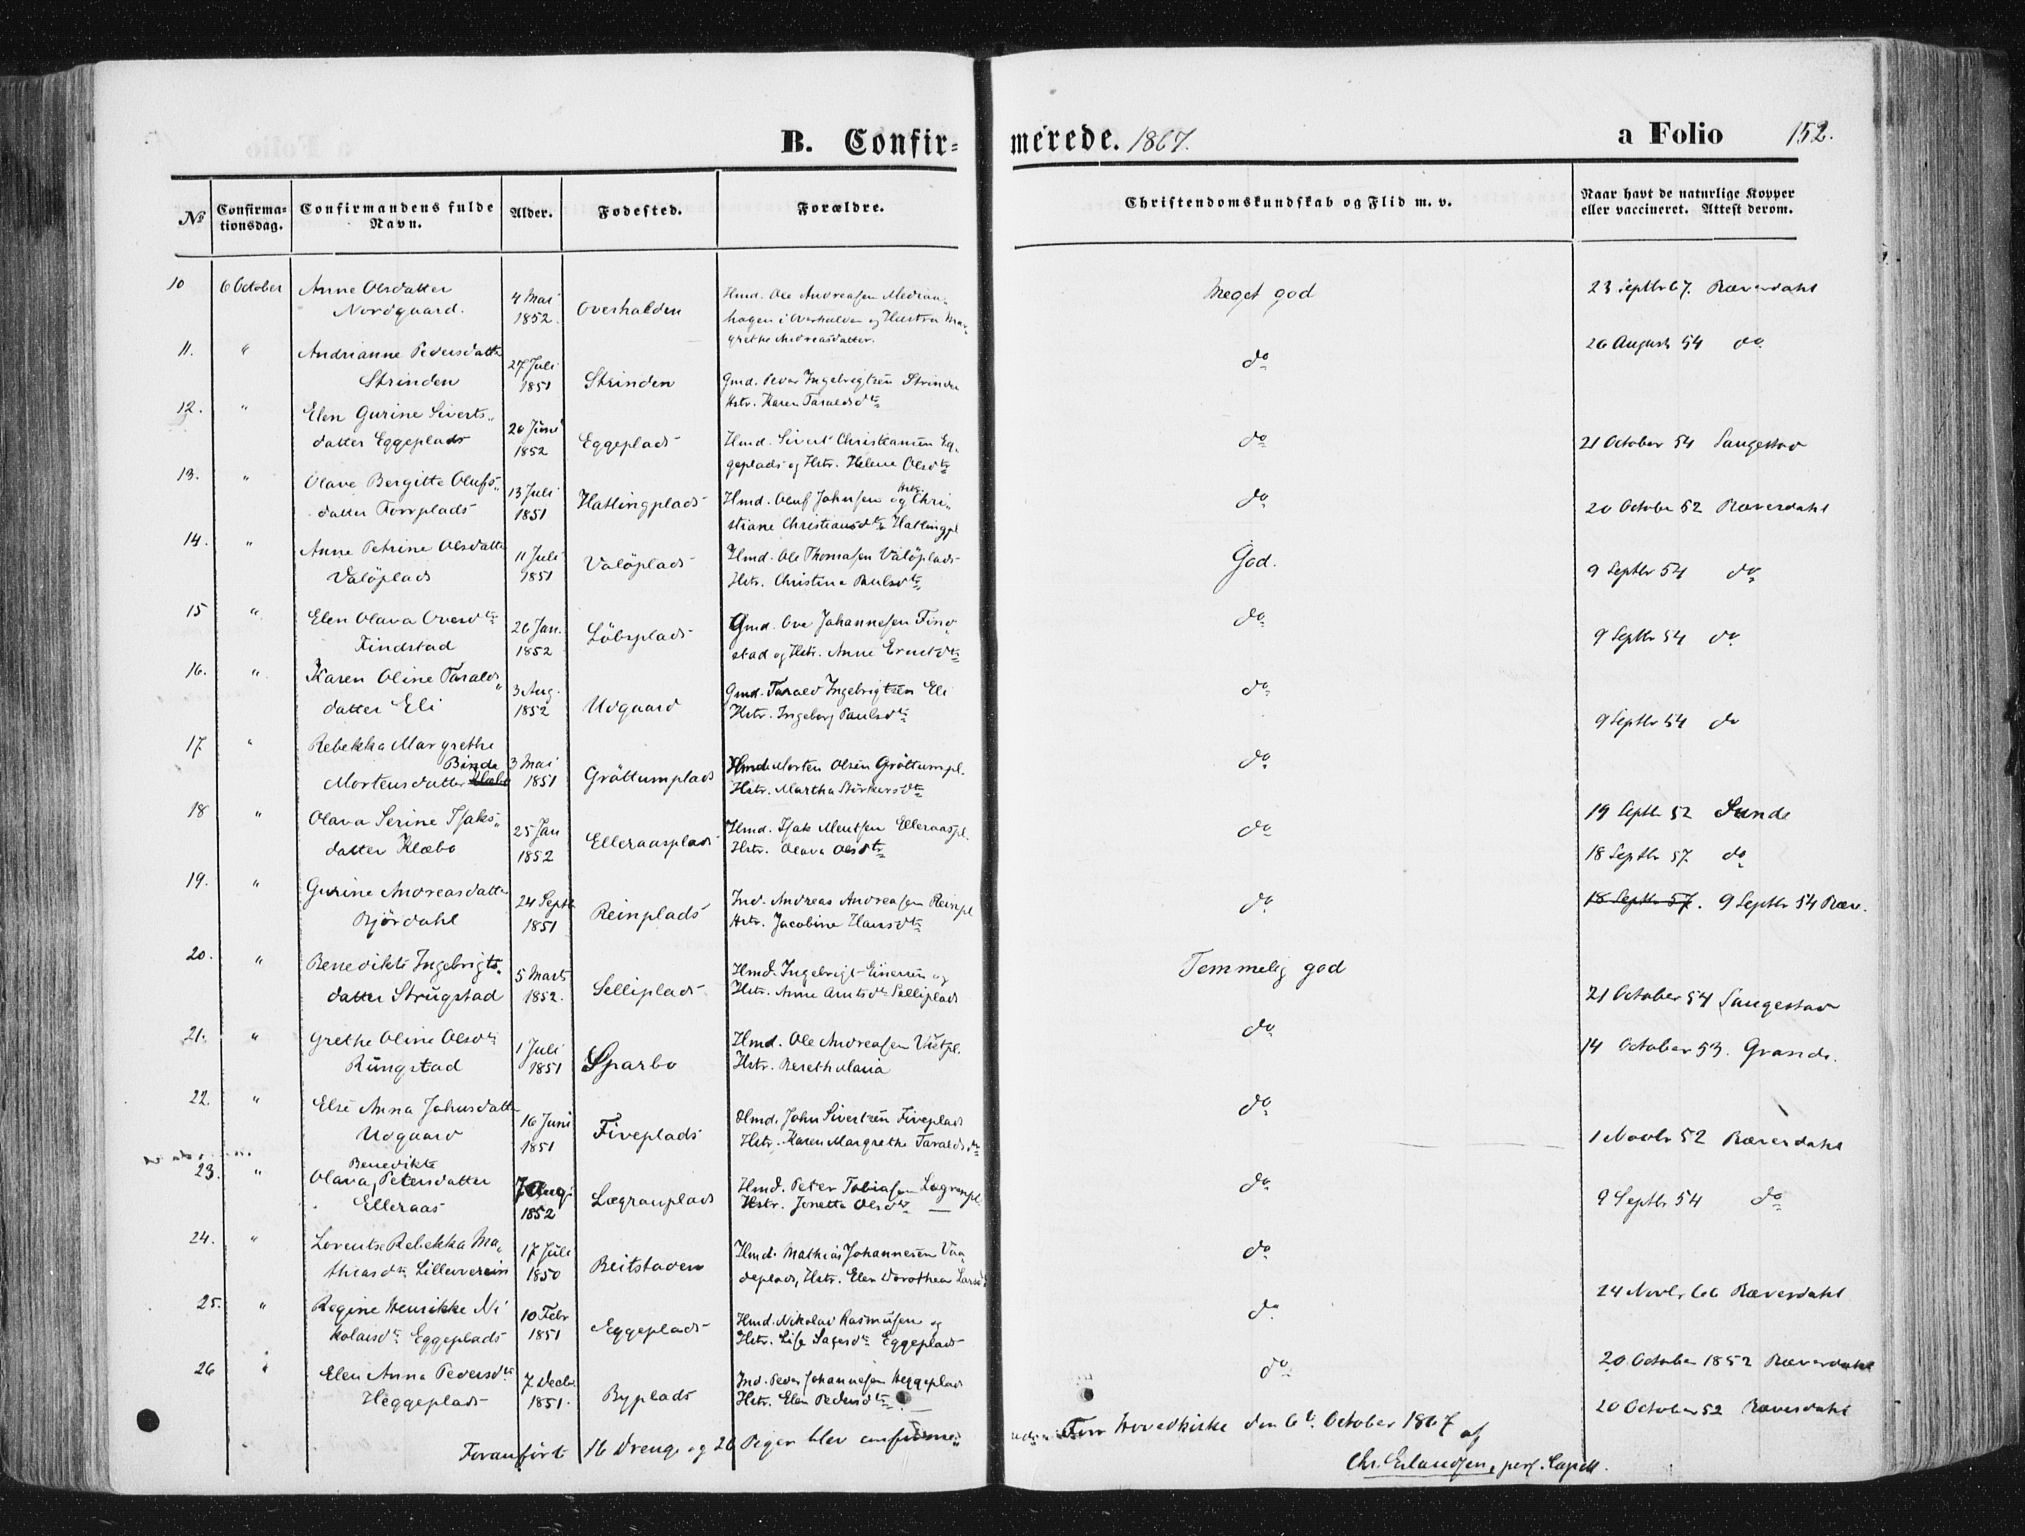 B. Confir=
merede. 1867.
a Folio 152.
No
Confirma=
tionsdag.
Confirmandens fulde
Navn.
Alder.
Fødested.
Forældre.
Christendomskundskab og Flid m. v.
Naar havt de naturlige Kopper
eller vaccineret. Attest derom.
10 6 October Anne Olsdatter
Nordgaard.
4 Mai
1852.
Overhalden
Hmd. Ole Andreasen
hagen i Overhalden og Hustru Mar-
grethe Andreasdatter.
Meget god
23 Septbr 67. Ræverdahl
11. " Andrianne Pedersdatter
Strinden
27 Juli
1851
Strinden
Gmd. Peder Ingebrigtsen Strinden
Hstr. Karen Taraldsdtr
do
26 August 54 do
12. " Elen Gurine Siverts-
datter Eggeplads
20 Juni
1852
Eggeplads
Hmd. Sivert Christiansen Eg-
geplads og Hstr. Helene Olsdtr
do
21 October 54 Saugestad
13. " Olave Bergitte Olufs-
datter Forrplads
13 Juli
1851
Hallingplads
Hmd. Oluf Johnsen og Hstr. Chri-
stiane Christiansdtr Hallingpl
do
20 October 52 Ræverdahl
14. " Anne Petrine Olsdatter
Valöplads
11 Juli
1851
Valöplads
Hmd. Ole Thomasen Valöplads
Hstr. Christine Paulsdtr
God.
9 Septbr 54 do
15 " Elen Olava Ovesdtr
Findstad
26 Jan.
1852
Löbsplads
Gmd. Ove Johannesen Find-
stad og Hstr. Anne Erntsdtr
do
9 Septbr 54 do
16. " Karen Oline Taralds-
datter Eli
3 Aug.
1852
Udgaard
Gmd. Tarald Ingebrigtsen Eli
Hstr. Ingeborg Paulsdtr
do
9 Septbr 54 do
17. " Rebekka Margrethe
Mortensdatter Binde
3 Mai
1851
Gröttumplads
Hmd. Morten Olsen Gröttumpl.
Hstr. Martha Börkersdtr
do
19 Septbr 52 Sunde
18 " Olava Serine Isaks-
datter Klæbo
25 Jan
1852
Elleraasplads
Hmd. Isak Mentsen Elleraaspl.
Hstr. Olava Olsdtr
do
18 Septbr 57 do
19. " Gurine Andreasdatter
Björdahl
24 Septb
1851
Reinplads
Ind. Andreas Andreasen Reinpl
Hstr. Jacobine Hansdtr
do
18 Septbr 57. 9 Septbr 54 Ræve.
20. " Benedikte Ingebrigts-
datter Strugstad
5 Marts
1852.
Selliplads
Hmd. Ingebrigt Einersen og
Hstr. Anne Arntsdtr Selliplads
Temmelig god
21 October 54 Saugestad
21. " Grethe Oline Olsdtr
Rungstad
1 Juli
1851
Sparbo
Hmd. Ole Andreasen Vistpl.
Hstr. Bereth Maria
do
14 October 53. Grande.
22. " Else Anna Johnsdatter
Udgaard
16 Juni
1851
Fiveplads
Hmd. John Sivertsen Fiveplads
Hstr. Karen Margrethe Taraldsdtr
do
1 Novbr 52 Ræverdahl
23. " Benedikte
Olava Petersdatter
Elleraas
7 Aug.
1852
Lægranplads
Hmd. Peter Tobiasen Lægranpl
Hstr. Jonetta Olsdtr
do
9 Septbr 54 do
24. " Lorentse Rebekka Ma-
thiasdtr Lilleverein
17 Juli
1850
Beitstaden
Hmd. Mathias Johannesen Vaa-
deplads, Hstr. Elen Dorothea Larsdtr
do
24 Novbr 66 Ræverdahl
25. " Regine Henrikke Ni
kolaisdtr Eggeplads
10 Febr
1851
Eggeplads
Hmd. Nikolai Rasmusen og
Hstr. Lise Eggeplads
do.
20 October 1852 Ræverdahl
26 " Elen Anna Pedersdtr
Heggeplads
7 Decb.
1851.
Byplads
Ind. Peder Johannesen Heggeplads
Hstr. Elen Pedersdtr
do
20 October 52 Ræverdahl
Foranførte 16 Drenge og 26 Piger blev confirme-
rede i Forr Hovedkirke den 6te October 1867 af
Chr. Erlandsen, pers. Capell.